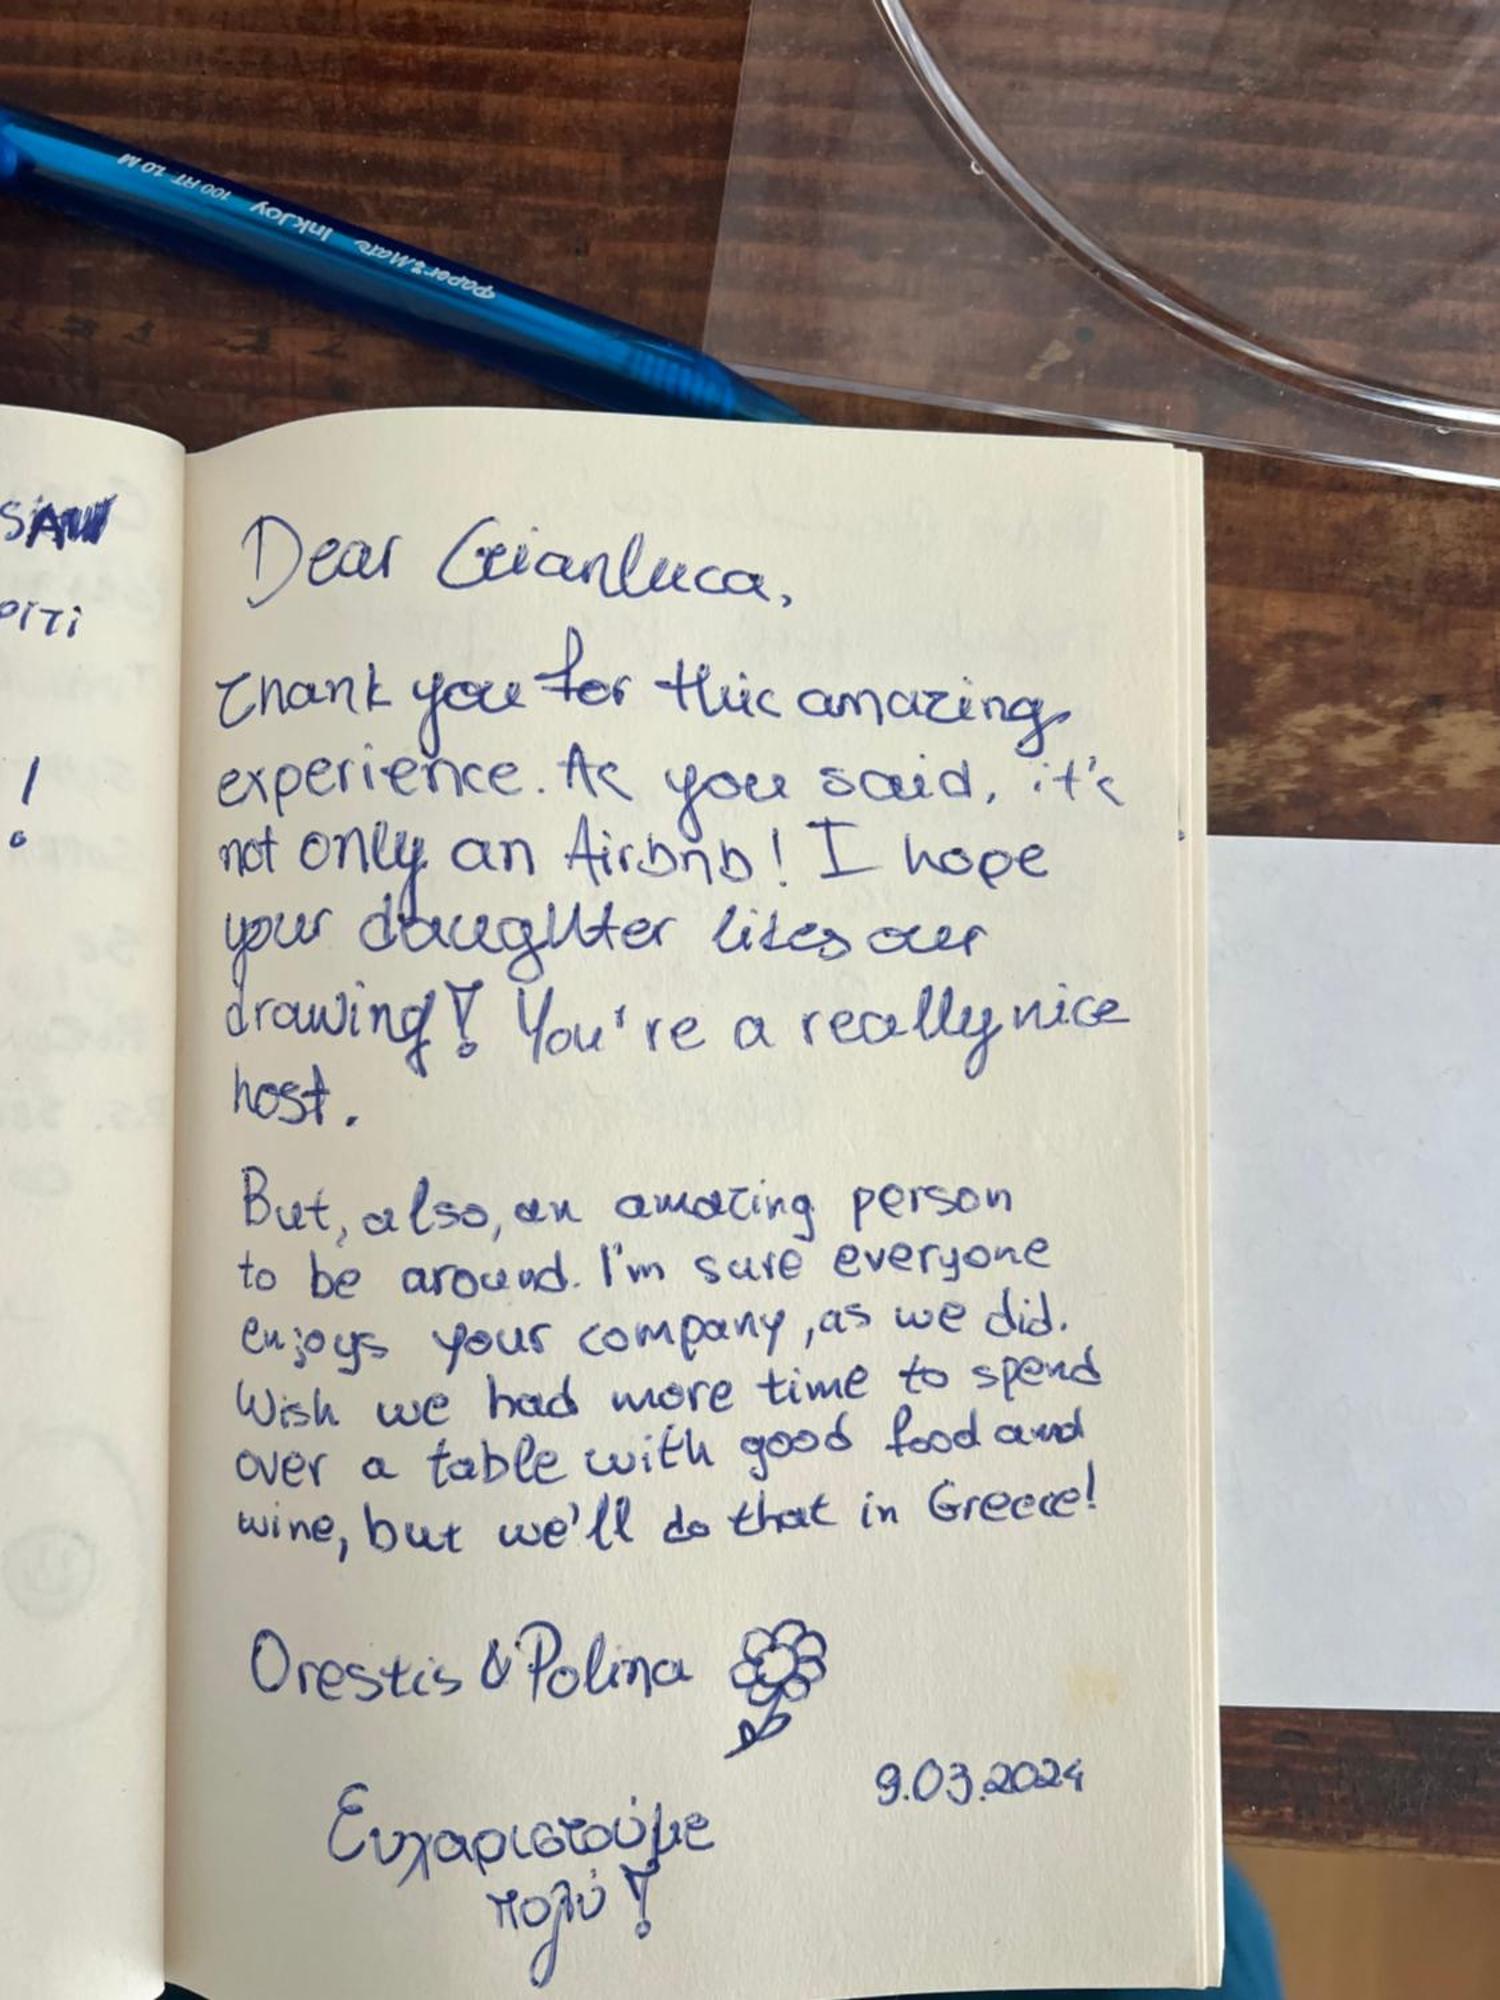 Paper Mate InkJoy 100 RT 1.0 M
Dear Gianluca,
Thank you for this amazing
experience. As you said, it's
not only an Airbnb! I hope
your daughter likes our
drawing! You're a really nice
host.
But, also, an amazing person
to be around. I'm sure everyone
enjoys your company, as we did.
Wish we had more time to spend
over a table with good food and
wine, but we'll do that in Greece!
Orestis & Polina
9.03.2024
Ευχαριστούμε
πολύ!